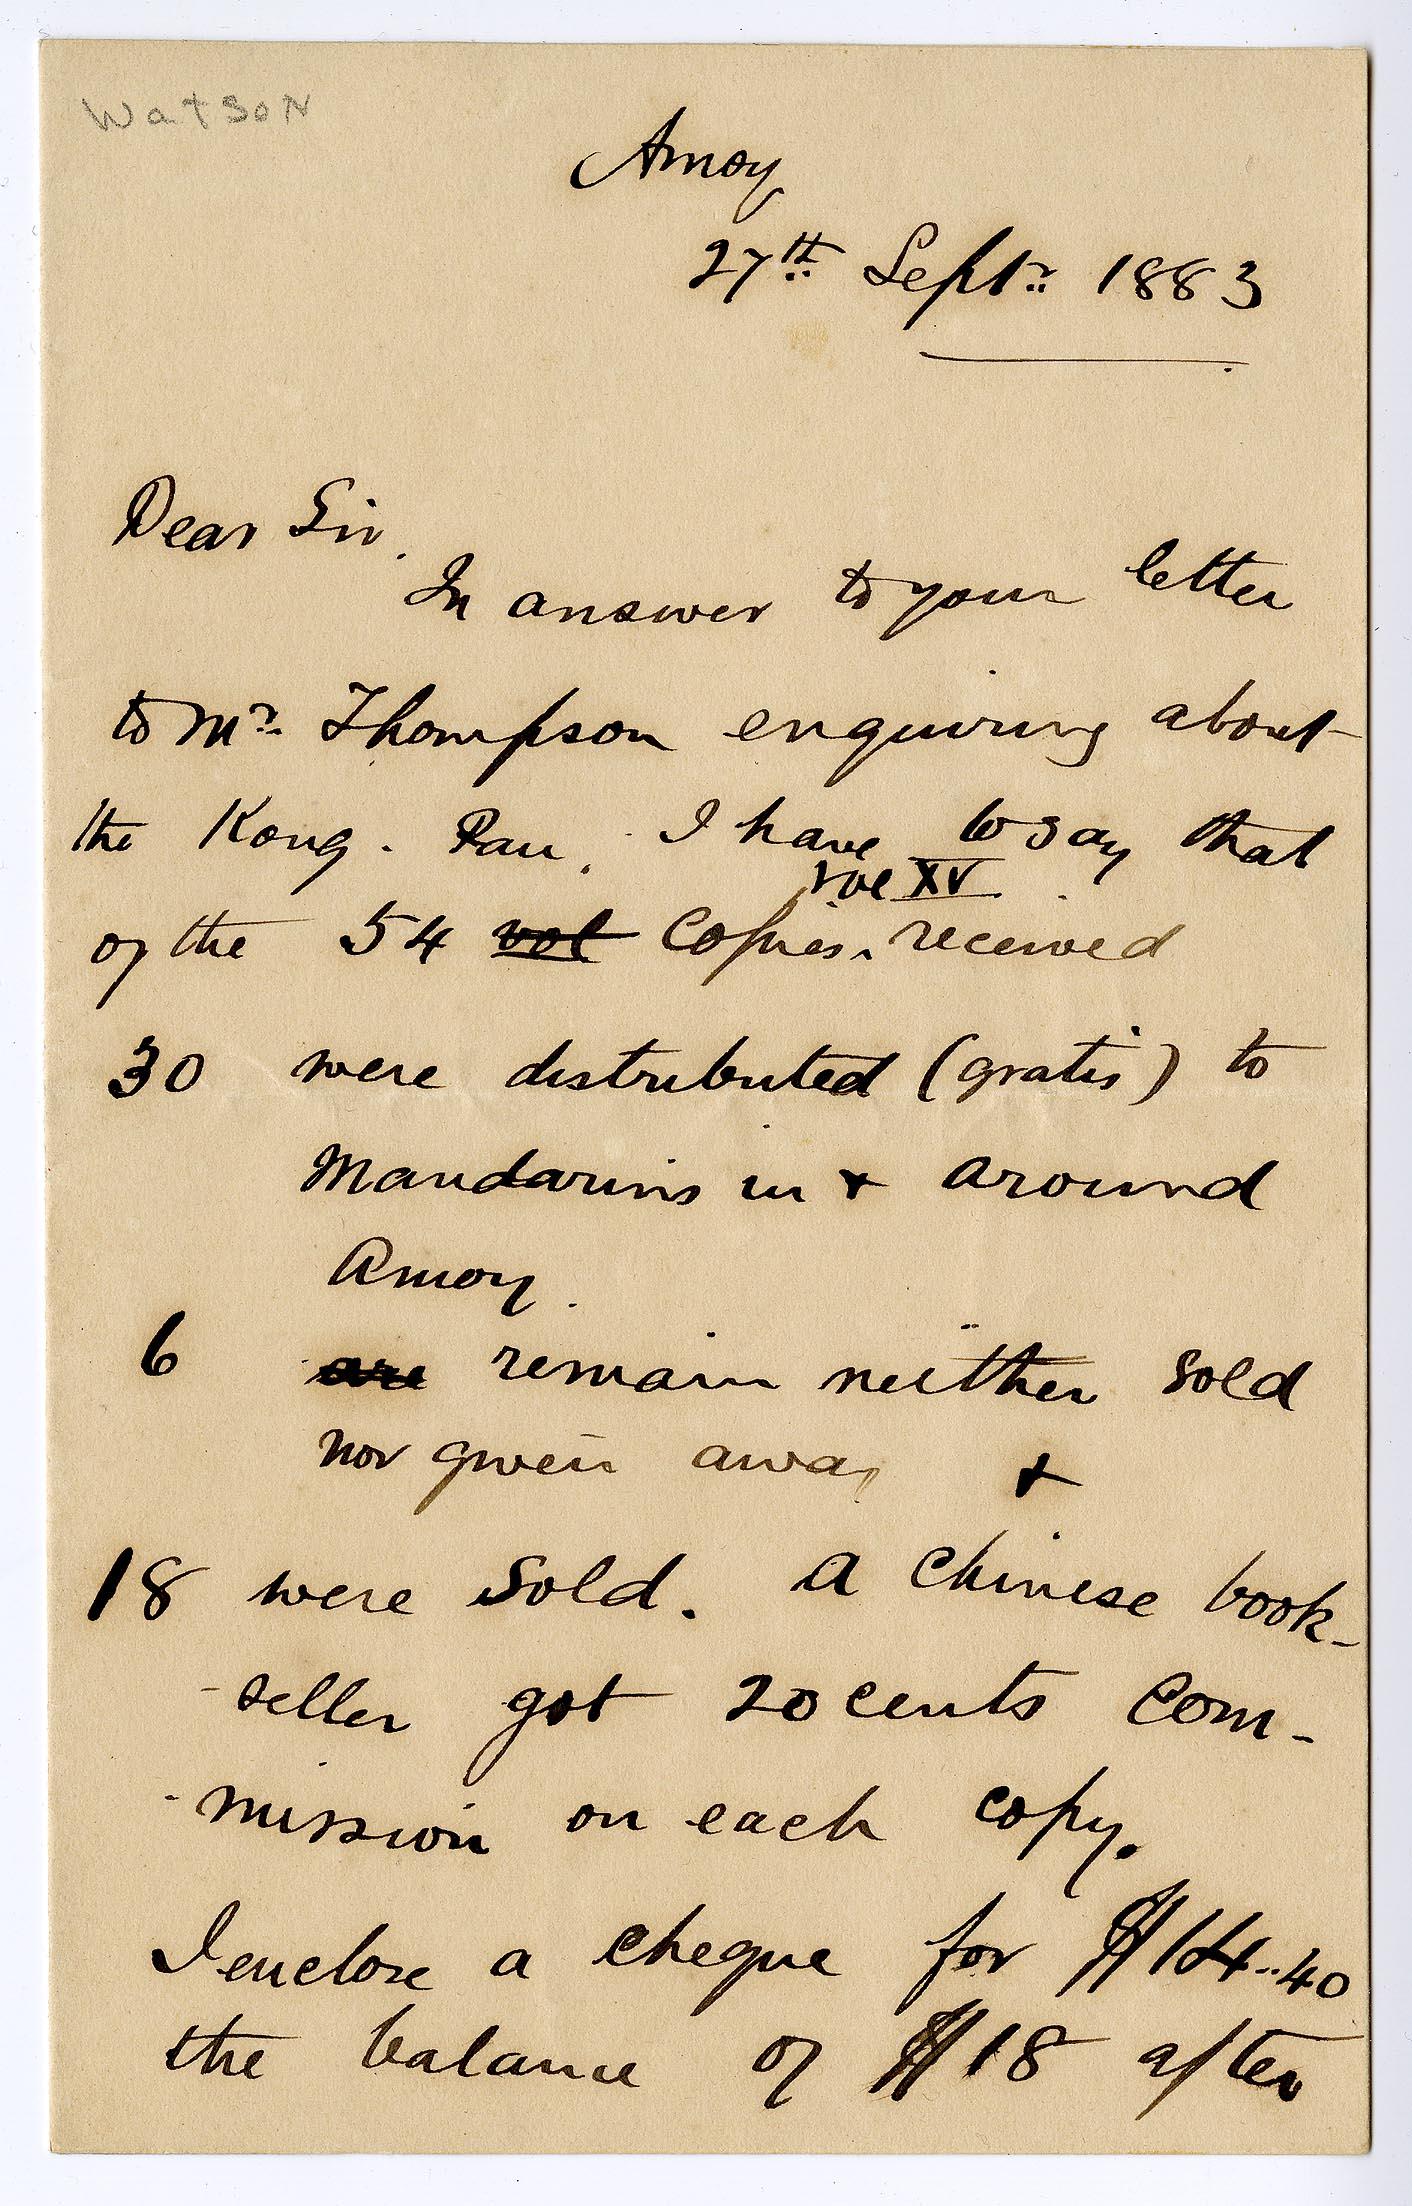 Watson
Amoy
27th Septr 1883
Dear Sir.
In answer to your letter
to Mr Thompson enquiring about
the Kong. Pau. I have to say that
vol XV
of the 54 vol Copies. received
30 were distributed (gratis) to
Mandarins in & around
Amoy.
6 are remain neither sold
nor given away &
18 were sold. A Chinese book-
-seller got 20 cents com-
-mission on each copy.
I enclose a cheque for $14..40
the balance of $18 after